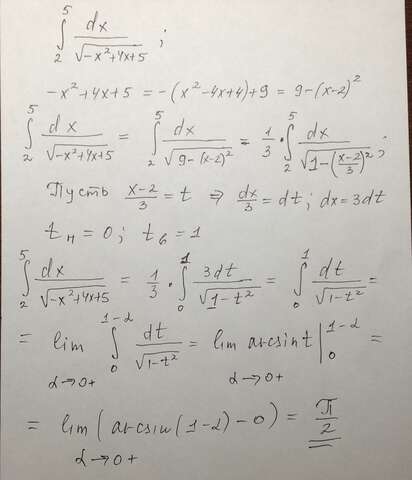 ∫₂⁵ dx/√(-x²+4x+5) ;
-x²+4x+5 = -(x²-4x+4)+9 = 9-(x-2)²
∫₂⁵ dx/√(-x²+4x+5) = ∫₂⁵ dx/√(9-(x-2)²) = 1/3 · ∫₂⁵ dx/√(1-((x-2)/3)²) ;
Пусть (x-2)/3 = t ⇒ dx/3 = dt; dx = 3dt
tн = 0; tв = 1
∫₂⁵ dx/√(-x²+4x+5) = 1/3 · ∫₀¹ 3dt/√(1-t²) = ∫₀¹ dt/√(1-t²) =
= lim_{α→0+} ∫₀^{1-α} dt/√(1-t²) = lim_{α→0+} arcsin t |₀^{1-α} =
= lim_{α→0+} (arcsin(1-α)-0) = π/2